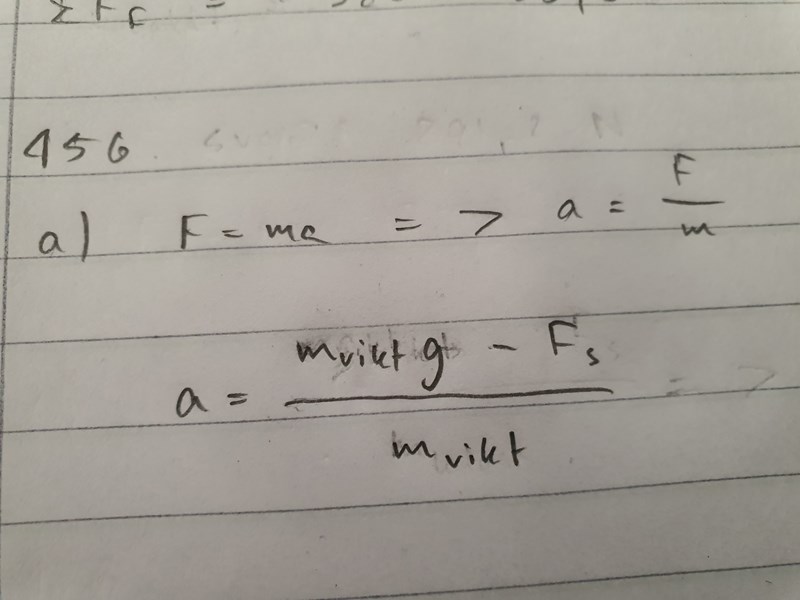 456
a) F = ma => a = F/m
a = (m_vikt g - F_s)/m_vikt =>